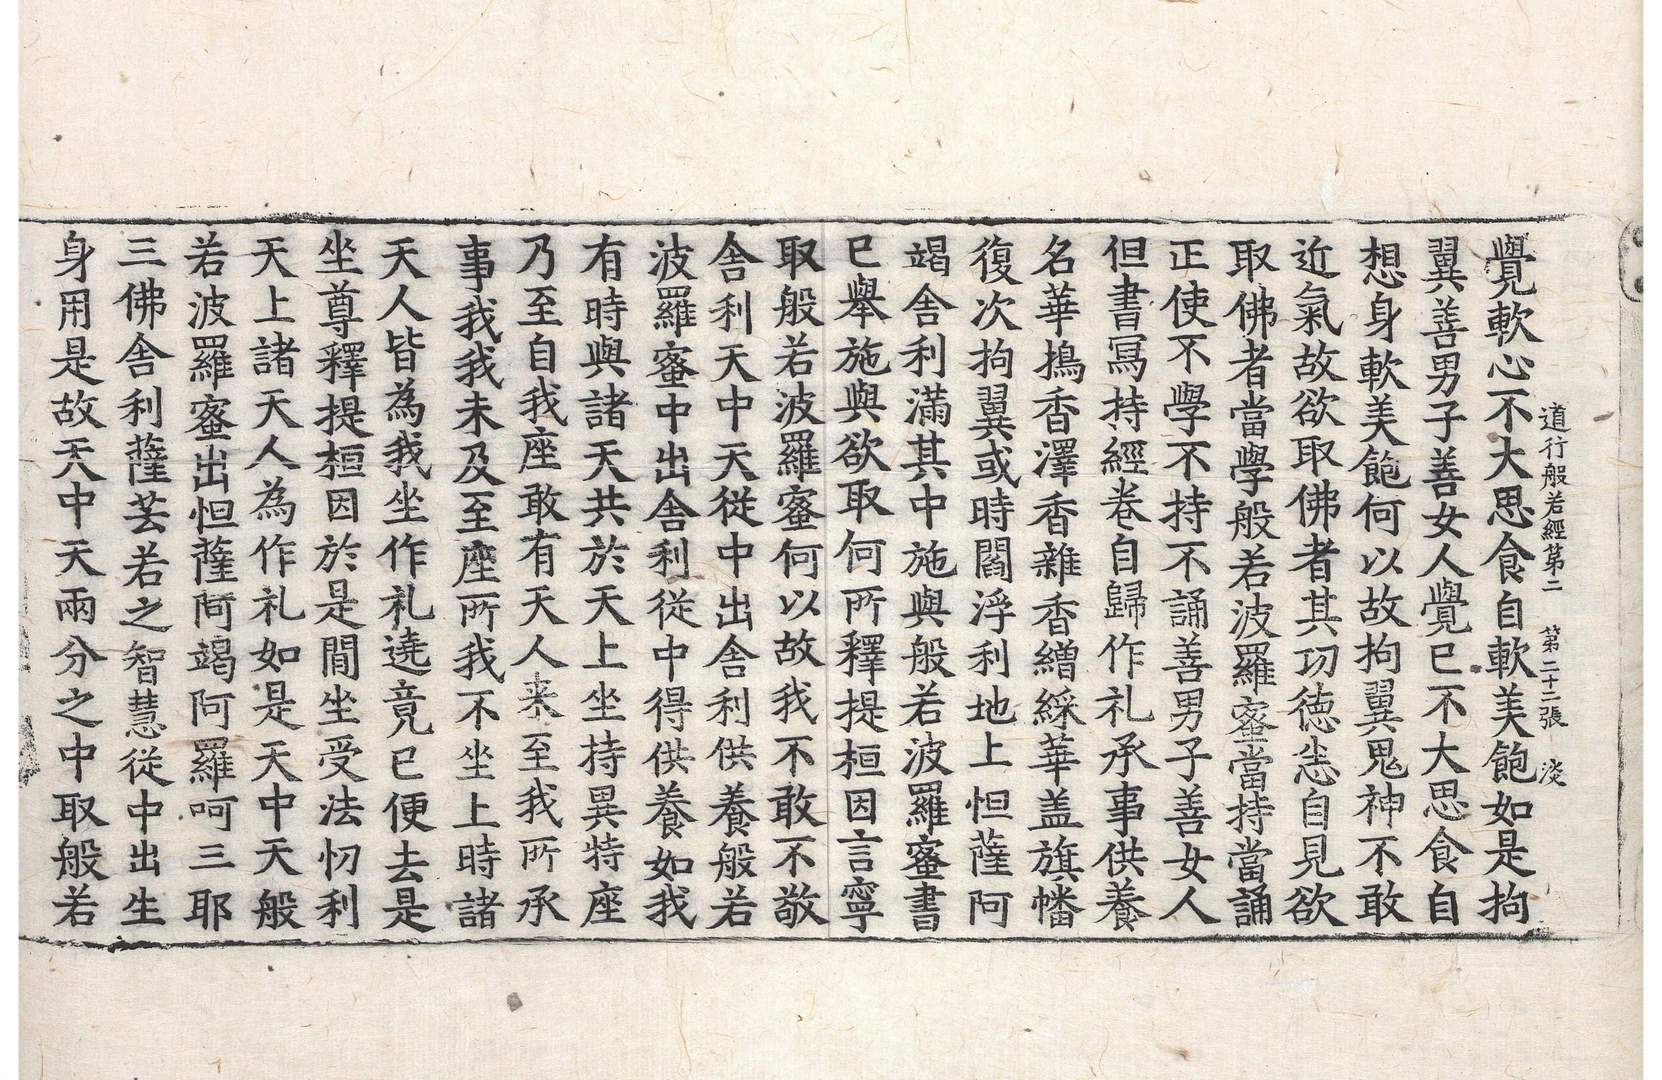 道行般若經第二　第二十二張　淡
覺軟心不大思食自軟美飽如是拘
翼善男子善女人覺已不大思食自
想身軟美飽何以故拘翼鬼神不敢
近氣故欲取佛者其功德悉自見欲
取佛者當學般若波羅蜜當持當誦
正使不學不持不誦善男子善女人
但書寫持經卷自歸作礼承事供養
名華擣香澤香雜香繒綵華盖旗幡
復次拘翼或時閻浮利地上怛薩阿
竭舍利滿其中施與般若波羅蜜書
已舉施與欲取何所釋提桓因言寧
取般若波羅蜜何以故我不敢不敬
舍利天中天從中出舍利供養般若
波羅蜜中出舍利從中得供養如我
有時與諸天共於天上坐持異特座
乃至自我座敢有天人来至我所承
事我我未及至座所我不坐上時諸
天人皆為我坐作礼遶竟已便去是
坐尊釋提桓因於是閒坐受法忉利
天上諸天人為作礼如是天中天般
若波羅蜜出怛薩阿竭阿羅呵三耶
三佛舍利薩芸若之智慧從中出生
身用是故天中天兩分之中取般若